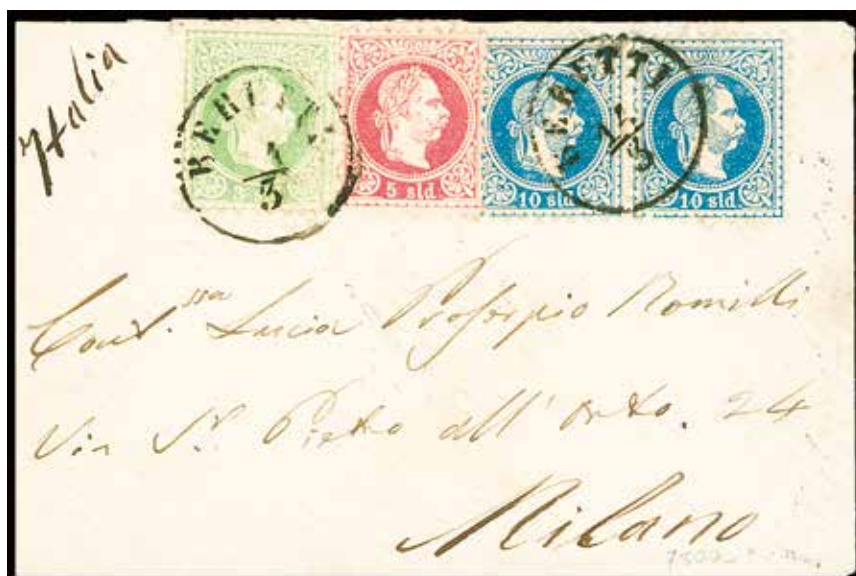 Italia
BERUTTI
1/3
5 sld
BERUTTI
1/3
10 sld
10 sld
Cont.ssa Lucia Prospio Romilli
Via S. Pietro all' Orto. 24
Milano